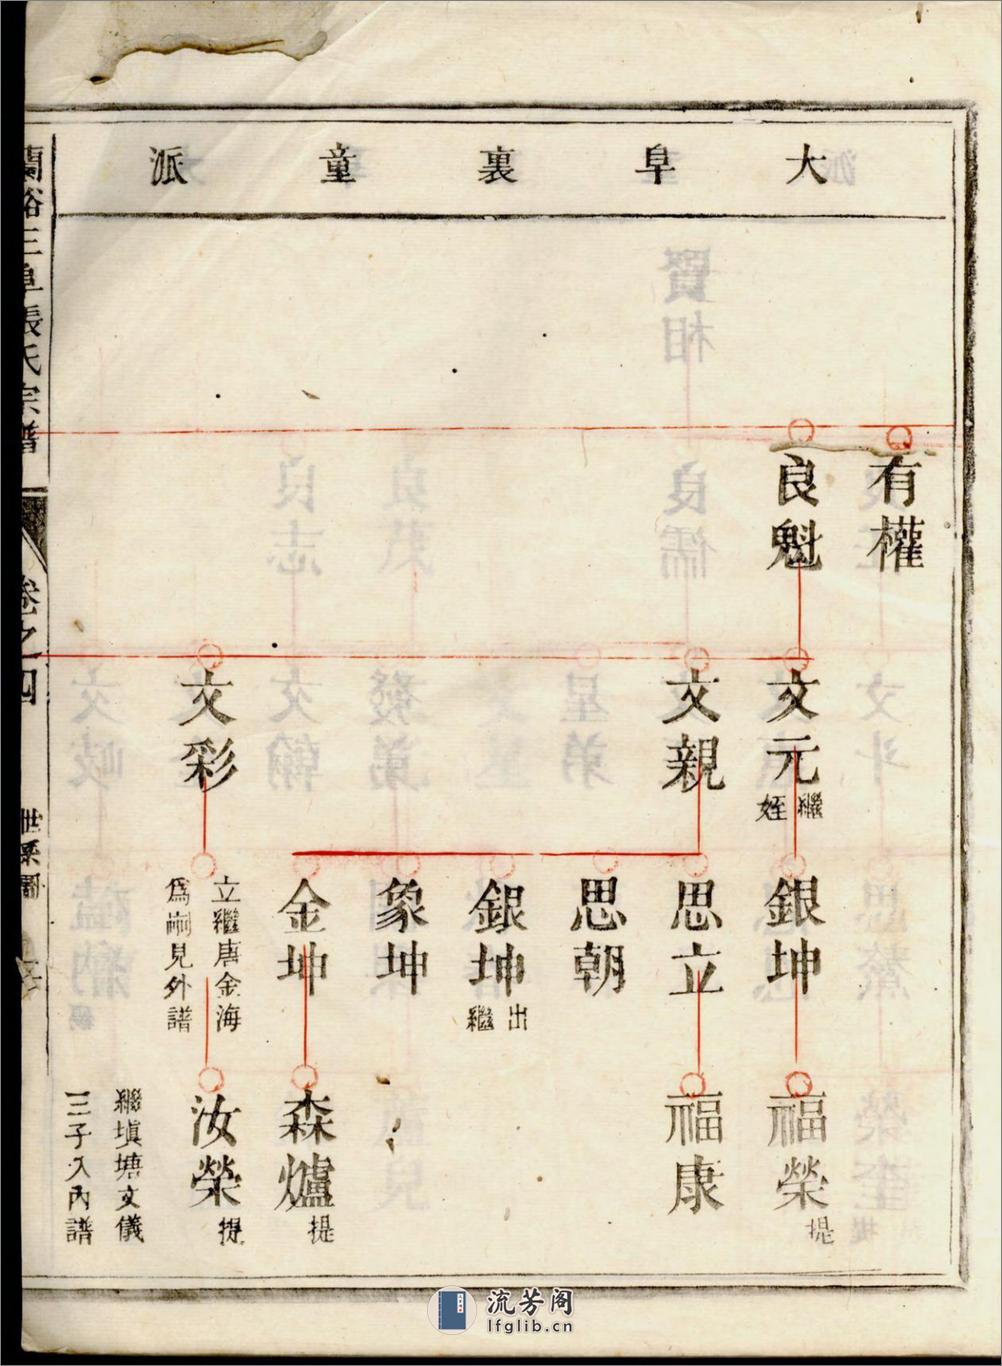 大阜裏童派
有權
良魁
文元
繼
姪
文親
文彩
銀坤
思立
思朝
銀坤
出
繼
象坤
金坤
立繼唐金海
為嗣見外譜
福榮
提
福康
森爐
提
汝榮
提
繼塡塘文儀
三子入內譜
蘭谿三阜張氏宗譜
卷之四
世系圖
流芳阁
lfglib.cn